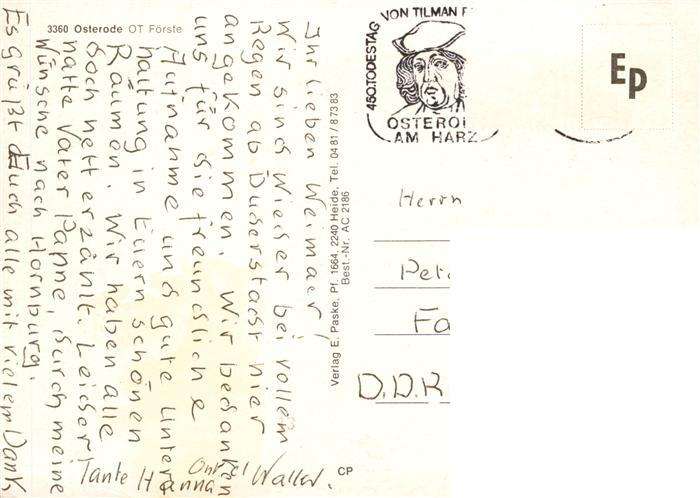 3360 Osterode OT Förste
Ihr lieben Weimaer!
Wir sind wieder bei vollem
Regen ab Duderstadt hier
angekommen. Wir bedanken
uns für die freundliche
Aufnahme und gute Unter
haltung in Euern schönen
Räumen. Wir haben alle
doch nett erzählt. Leider
hatte Vater Panne, durch meine
Wünsche nach Hornburg.
Es grüßt Euch alle mit vielem Dank
Tante Hanna Onkel Walter.
Verlag E. Paske, Pf. 1664, 2240 Heide, Tel. 04 81 / 8 73 83
Best.-Nr. AC 2186
CP
450. TODESTAG VON TILMAN
OSTERO
AM HARZ
Ep
Herrn
Pet
Fa
D.D.R